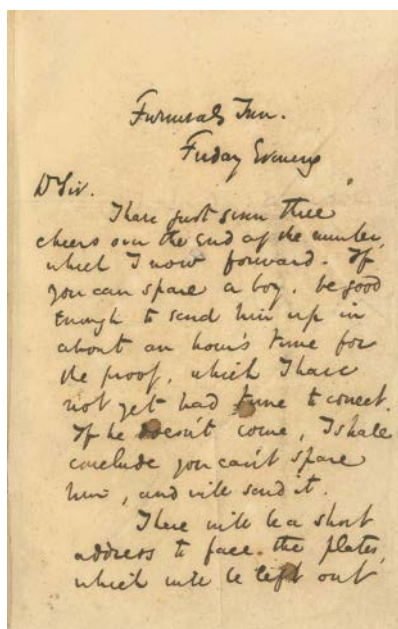 Furnivals Inn.
Friday Evening
Dr Sir.
I have just given three
cheers over the end of the number,
which I now forward. If
you can spare a boy, be good
enough to send him up in
about an hour's time for
the proof, which I have
not yet had time to correct.
If he doesn't come, I shall
conclude you can't spare
him, and will send it.
There will be a short
address to face the plates,
which will be left out